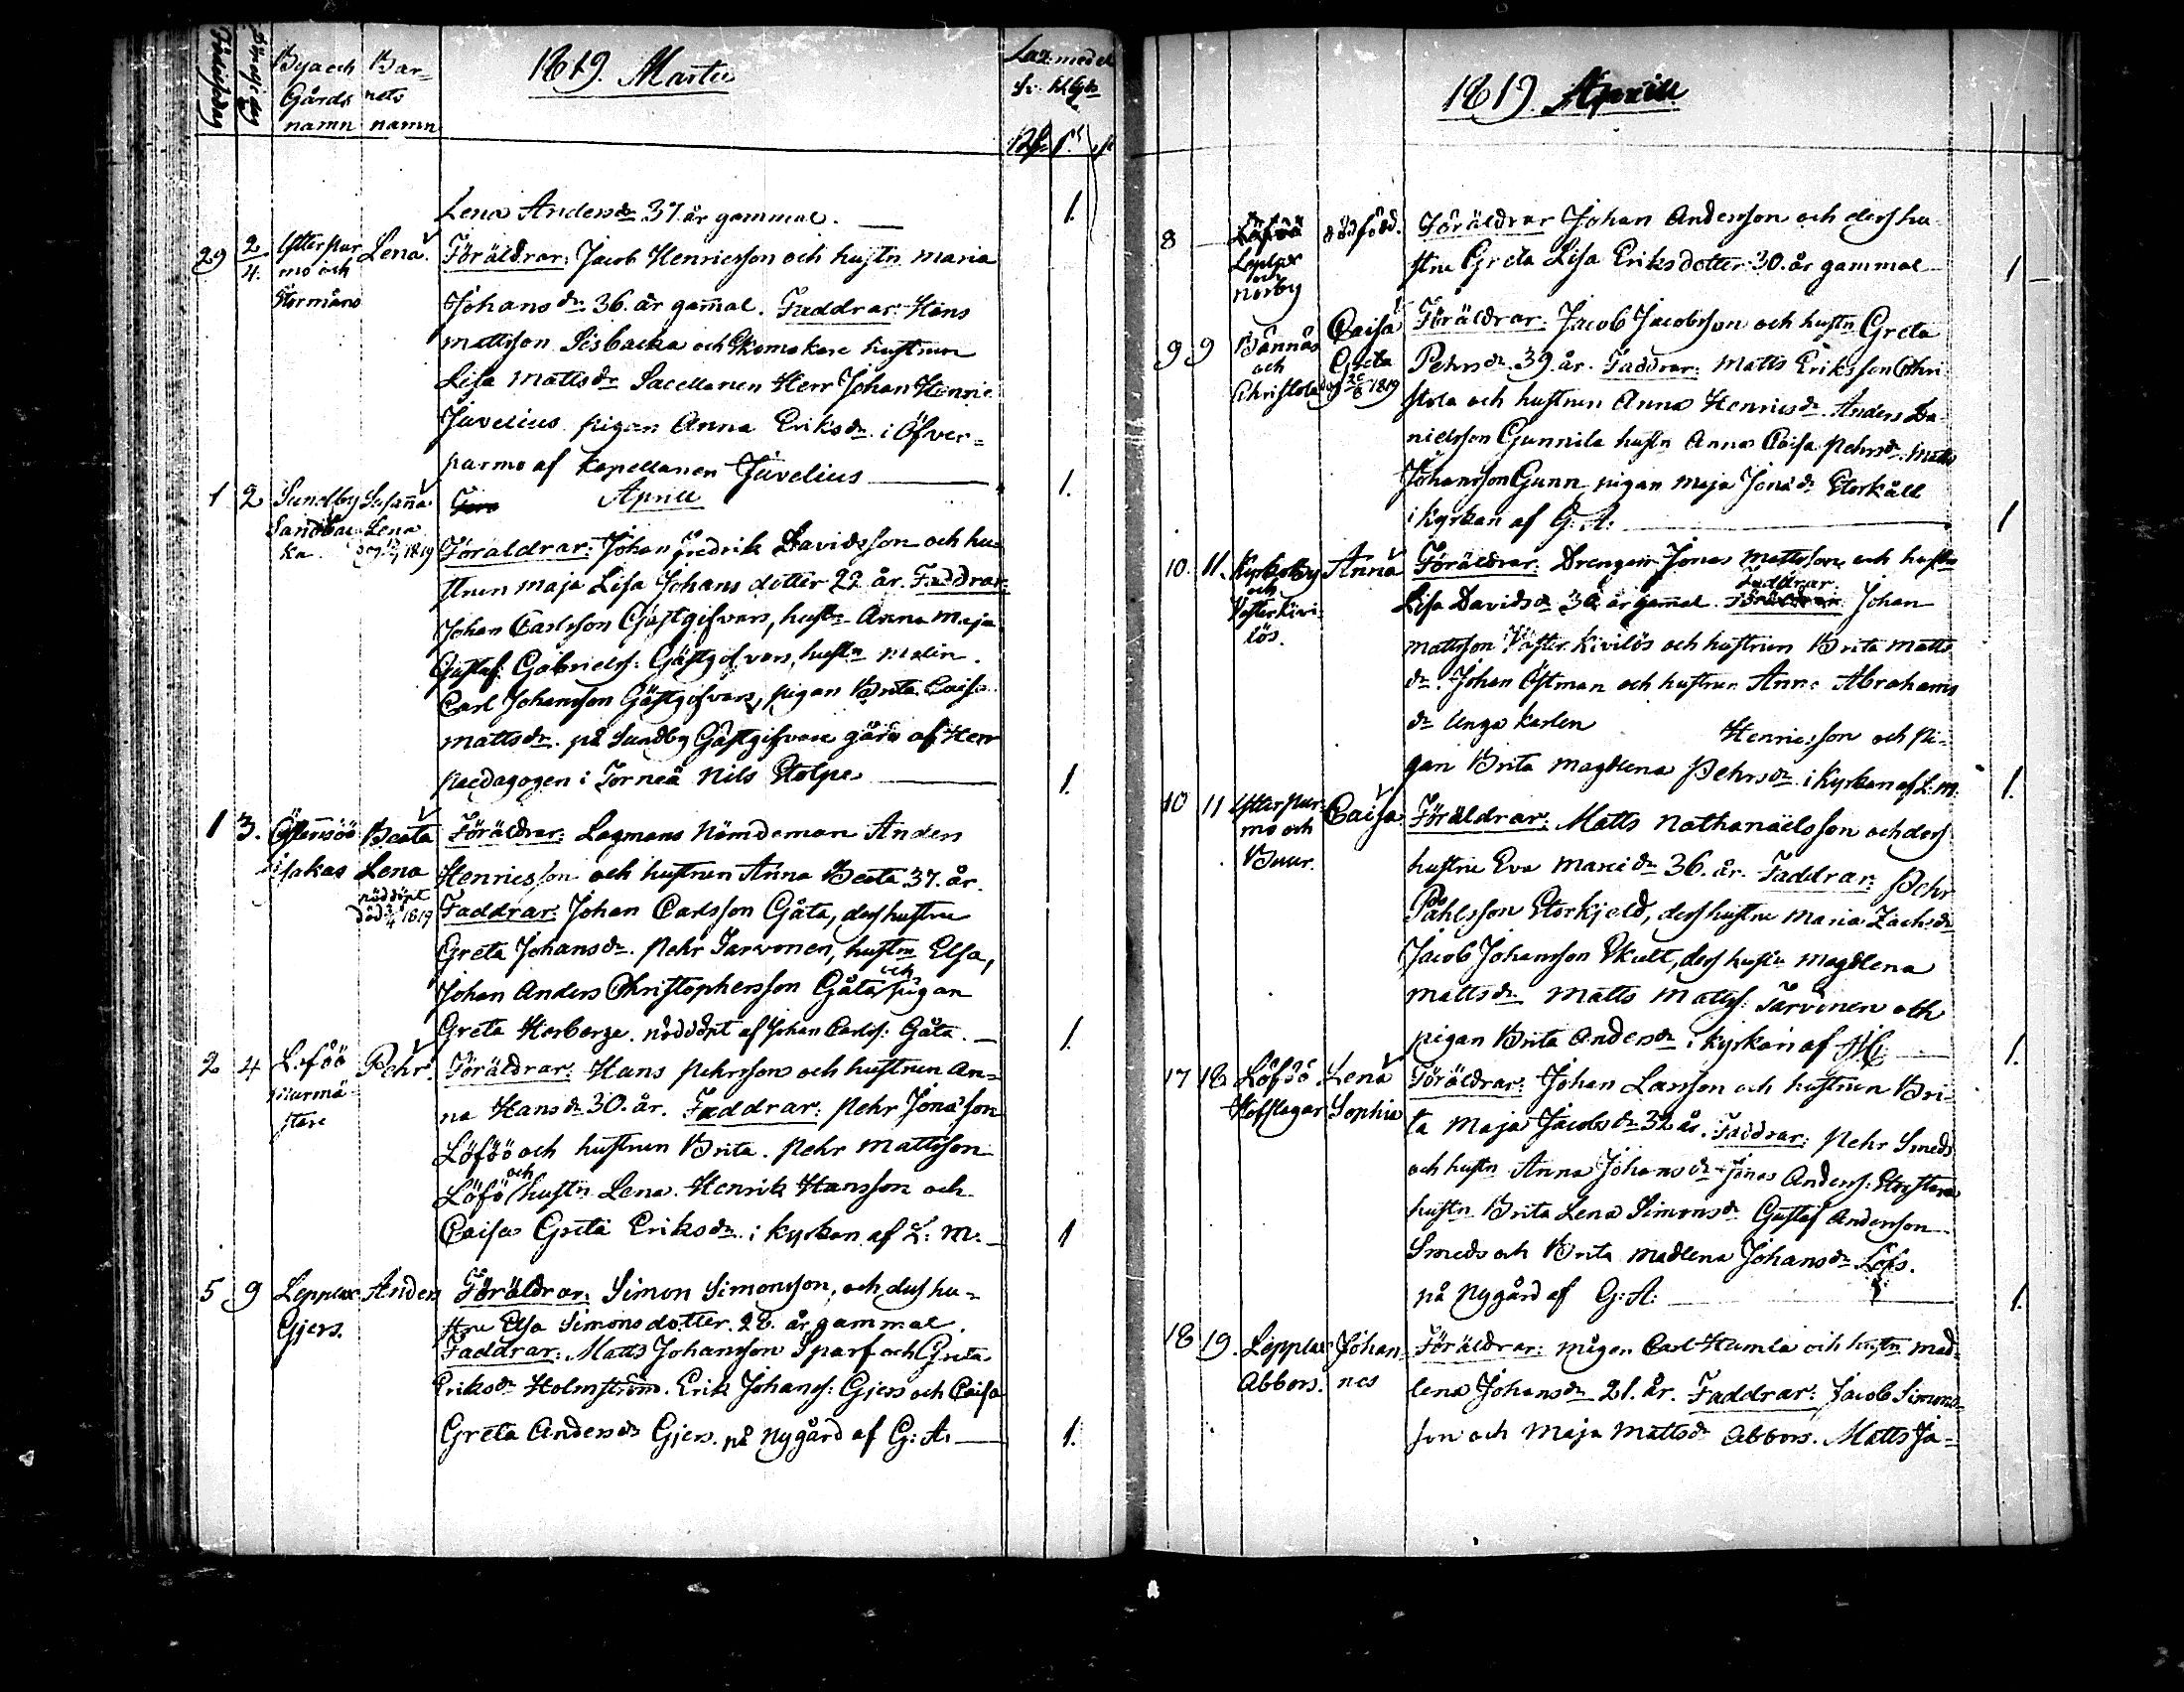 Födelsedag Döpelsedag Bya och Gårds namn Barnets namn 1819. Martii Laz: medel
Lena Andersdr 37. år gammal. 1.
29 2/4. Ytterpurmo och Stormåns Lena. Föräldrar: Jacob Henricsson och hustn Maria
Johansdr 36. år gam̄al. Faddrar: Hans
Mattsson Sisbacka och Skomakare hustrun
Lisa Mattsdr Sacellanen Herr Johan Henric
Juvelius pigan Anna Eriksdr i Öfver=
purmo af Kapellanen Juvelius 1.
Aprill
1 2 Sundby Sandbacka Susanna Lena
Föräldrar: Johan Fredrik Davidsson och hu=
strun Maja Lisa Johans dotter 22 år. Faddrar:
Johan Carlsson Gästgifvars, hustr Anna Maja
Gustaf Gabrielss: Gästgifvars, hustn Malin.
Carl Johansson Gästgifvars, pigan Brita Caisa
Mattsdr. på Sundby Gästgifvare gård af Herr
Paedagogen i Torneå Nils Stolpe 1.
1 3. Östensöö Isakas Beata Lena nöddöpt död 3/4 1819 Föräldrar: Lagmans Nämdeman Anders
Henricsson och hustrun Anna Beata 37. år.
Faddrar: Johan Carlsson Gåta, dess hustru
Greta Johansdr. Pehr Tarvonen, hustrn Elsa,
Johan Anders Christophersson Gåta och pigan
Greta Herberge. nöddöpt af Johan Carlss: Gåta. 1.
2 4 Löföö Murmästare Pehr. Föräldrar: Hans Pehrsson och hustrun An=
na Hansdr 30. år. Faddrar: Pehr Jonasson
Löföö och hustrun Brita. Pehr Mattsson
Löfö och hustn Lena. Henrik Hansson och
Caisa Greta Eriksdr. i Kyrkan af L: M: 1
5 9 Lepplax Gjers. Anders Föräldrar: Simon Simonsson, och dess hu=
stru Elsa Simonsdotter. 28. år gammal.
Faddrar: Matts Johansson Sparf och Greta
Eriksdr Holmström. Erik Johanss: Gjers och Caisa
Greta Andersdr Gjers. på Nygård af G: A. 1.
1819. Aprill
8 Löföö Lepplax och Norby dödfödd. Föräldrar Johan Andersson och dess hu
stru Greta Lisa Eriksdotter 30. år gammal 1
9 9 Bännäs och Christola Caisa Greta Föräldrar: Jacob Jacobsson och hustn Greta
Pehrsdr. 39. år. Faddrar: Matts Eriksson Chri
stola och hustrun Anna Henricsdr Anders Da=
nielsson Gunnila hustn Anna Caisa Pehrsdr. Matts
Johansson Gunn pigan Maja Jonasdr Storkåll
i Kyrkan af G: A: 1
10 11. Kyrkoby och Vesterkivilös. Anna Föräldrar: Drengen Jonas Mattsson och hustn
Lisa Davidsdr 30 år gam̄al. Faddrar Johan
Mattsson Väster Kivilös och hustrun Brita Matts
dr. Johan Östman och hustrun Anna Abrahams
dr unga karlen Henricsson och pi=
gan Brita Magdlena Pehrsdr. i Kyrkan af L: M. 1.
10 11 Ytterpurmo och Buur. Caisa Föräldrar: Matts Nathanaëlsson och dess
hustru Eva Mariadr 36. år. Faddrar: Pehr
Påhlsson Storkjeld, dess hustru Maria Zachsdr
Jacob Johansson Skult, dess hustru Magdlena
Mattsdr Matts Mattss: Tarvonen och
pigan Brita Andersdr i Kyrkan af 1.
17 18 Löföö Hofslagar Lena Sophia Föräldrar: Johan Larsson och hustrun Bri=
ta Maja Jacobsdr 32 år. Faddrar: Pehr Smeds
och hustn Anna Johansdr Jonas Anderss:
hustn Brita Lena Simonsdr Gustaf Andersson
Smeds och Brita Madlena Johansdr
på Nygård af G: A: 1.
18 19. Lepplax Abbors. Johannes Föräldrar: mågen Carl Humla och hustn Mad=
lena Johansdr 21. år. Faddrar: Jacob Simons=
son och Maja Mattsdr Abbors. Matts Ja=